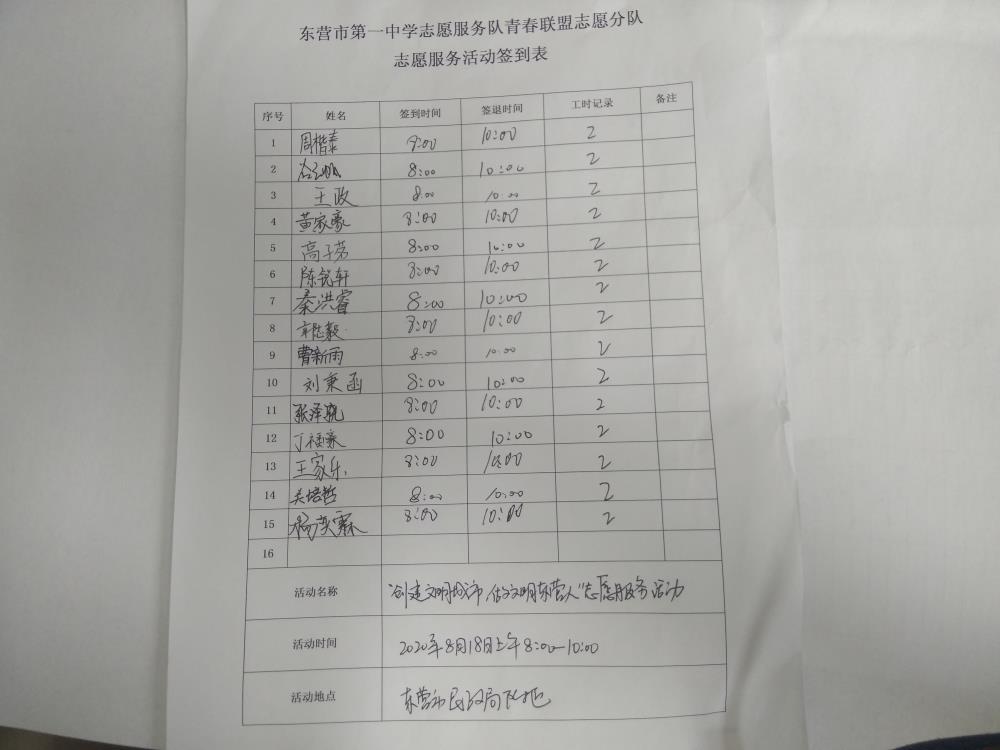 东营市第一中学志愿服务队青春联盟志愿分队
志愿服务活动签到表
序号 姓名 签到时间 签退时间 工时记录 备注
1 周楷泰 8:00 10:00 2
2 8:00 10:00 2
3 王政 8:00 10:00 2
4 黄家豪 8:00 10:00 2
5 高子芳 8:00 10:00 2
6 陈锐轩 8:00 10:00 2
7 秦洪睿 8:00 10:00 2
8 8:00 10:00 2
9 曹新雨 8:00 10:00 2
10 刘秉函 8:00 10:00 2
11 张泽骁 8:00 10:00 2
12 丁福豪 8:00 10:00 2
13 王家乐 8:00 10:00 2
14 关培哲 8:00 10:00 2
15 杨奕霖 8:00 10:00 2
16
活动名称 “创建文明城市,做文明东营人”志愿服务活动
活动时间 2020年8月18日上午8:00—10:00
活动地点 东营市民政局